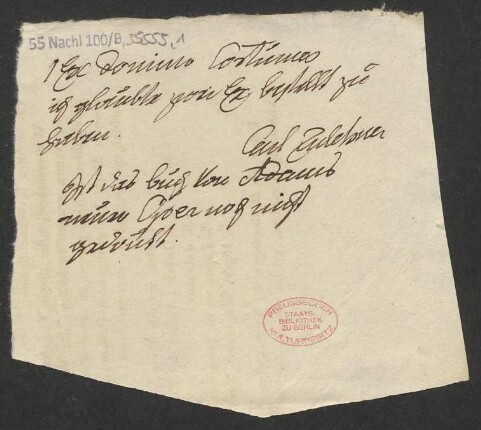 55 Nachl 100/B, 35555, 1
1 Ex Domino Costumes
ich glaubte zwei Ex bestellt zu
haben.
Carl Zulehner
Ist das buch von Adams
neuer Oper noch nicht
gedruckt.
PREUSSISCHER
STAATS-
BIBLIOTHEK
ZU BERLIN
KULTURBESITZ